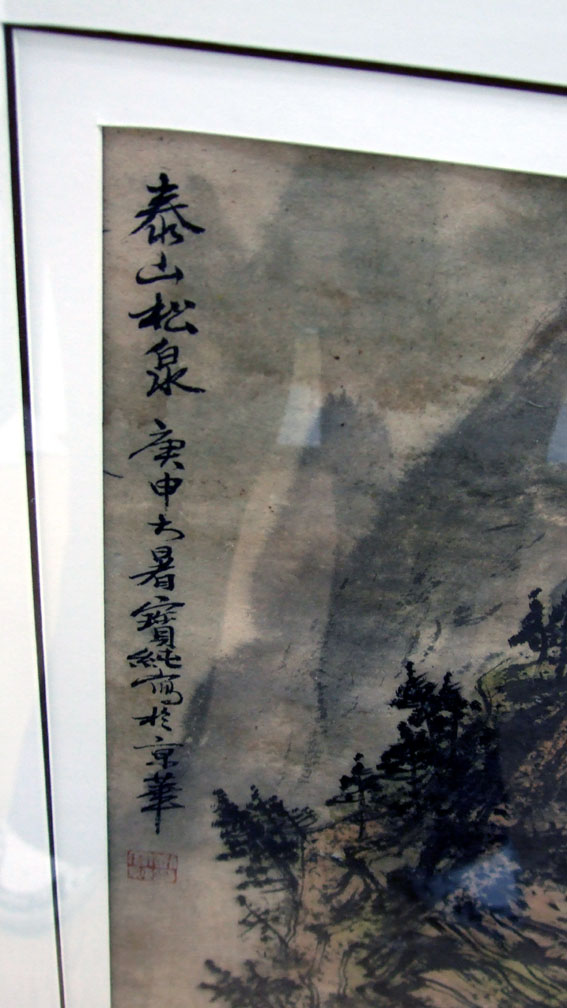 泰山松泉 庚申大暑寶純寫於京華